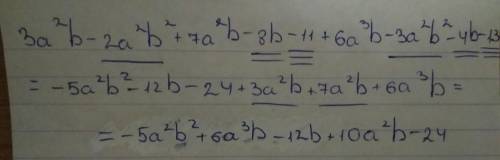 3a²b - 2a²b² + 7a²b - 8b - 11 + 6a³b - 3a²b² - 4b - 13
= -5a²b² - 12b - 24 + 3a²b + 7a²b + 6a³b =
= -5a²b² + 6a³b - 12b + 10a²b - 24